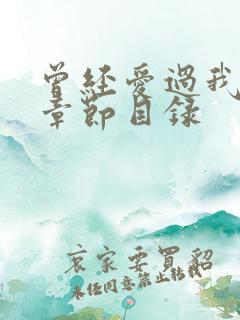 曾経愛過我
章節目錄
哀家要買貂
未任同意禁止转载